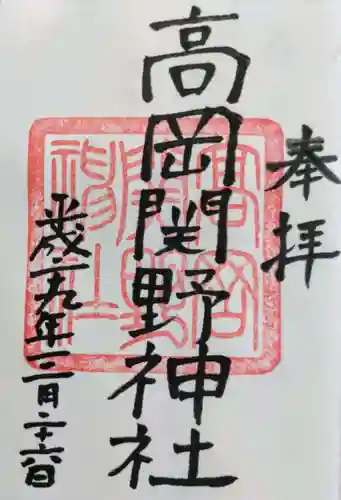 奉拝
高岡関野神社
平成二十九年二月二十六日